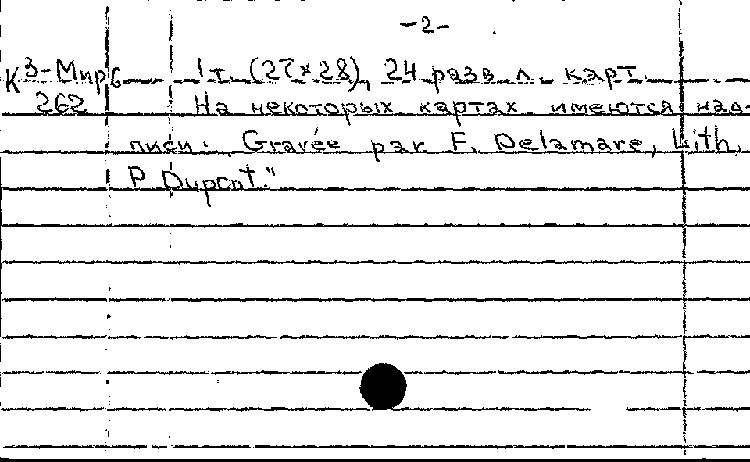 -2-
К 3-Мир6 1 т. (27×28), 24 разв. л. карт.
262 На некоторых картах имеются над-
писи: Gravée par F. Delamare, Lith.
P. Dupont."